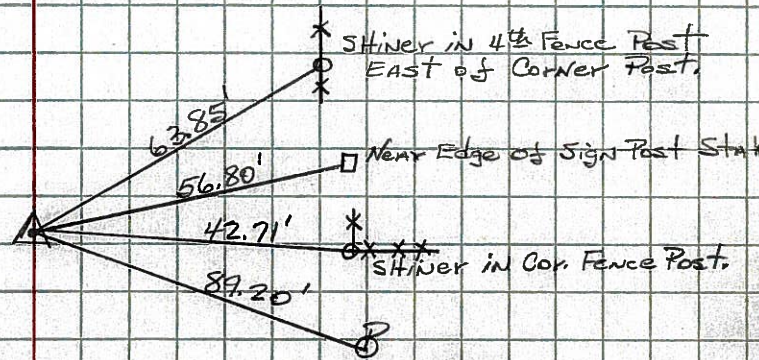 Shiner in 4th Fence Post
East of Corner Post.
63.85'
Near Edge of Sign Post
56.80'
42.71'
Shiner in Cor. Fence Post.
89.20'
P